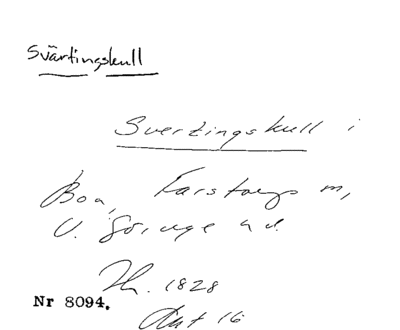 Svärtingskull
Svertingskull i
Boa, Karstorps m,
V. Göinge hd.
Th. 1828
Nr 8094.
Akt 16